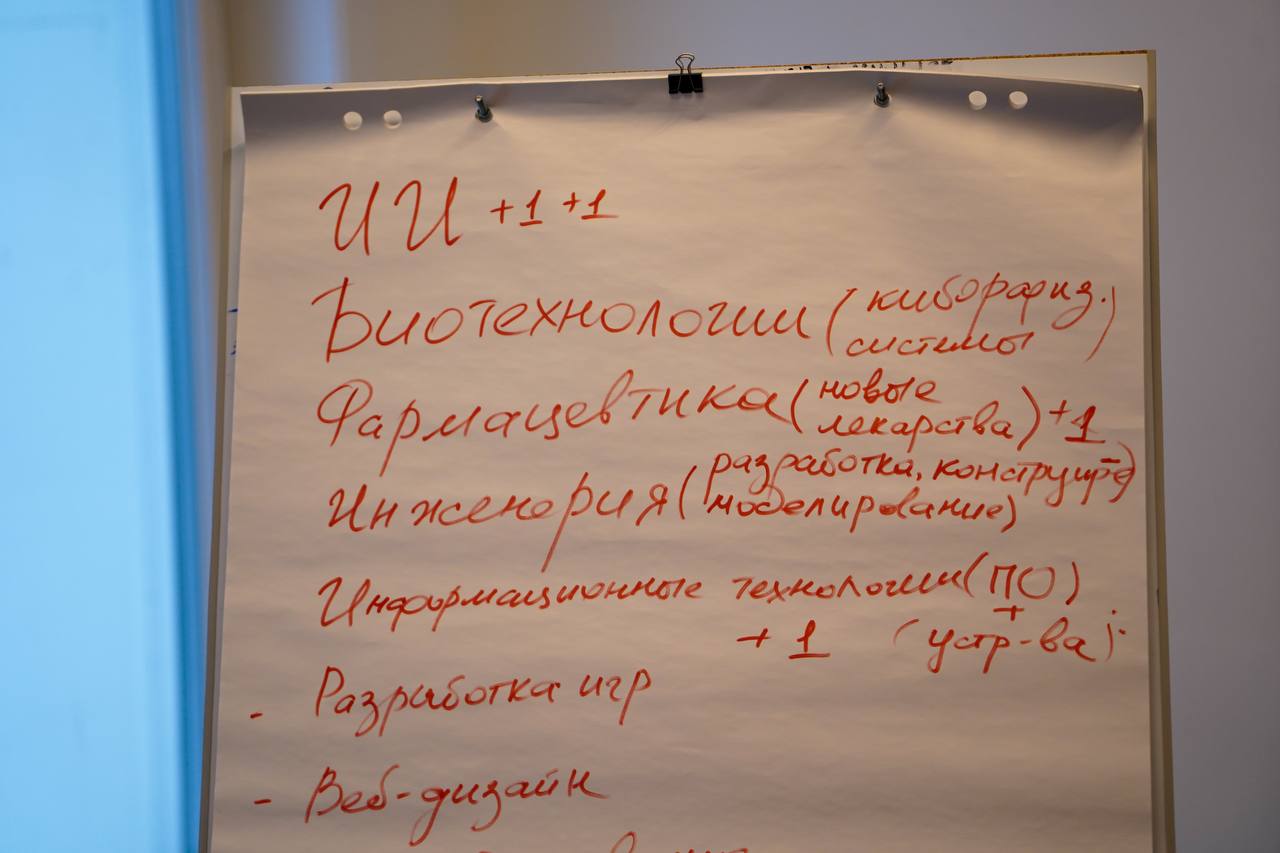 ИИ +1 +1
Биотехнологии (киборофиз.
системы)
Фармацевтика (новые
лекарства) +1
Инженерия (разработка,
моделирование)
Информационные технологии (ПО)
+
+ 1 (устр-ва)
- Разработка игр
- Веб-дизайн